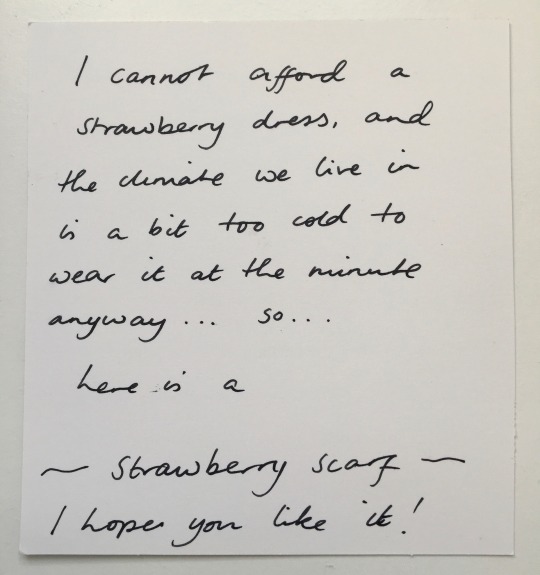 I cannot afford a
strawberry dress, and
the climate we live in
is a bit too cold to
wear it at the minute
anyway... so...
here is a
~ strawberry scarf ~
I hope you like it!